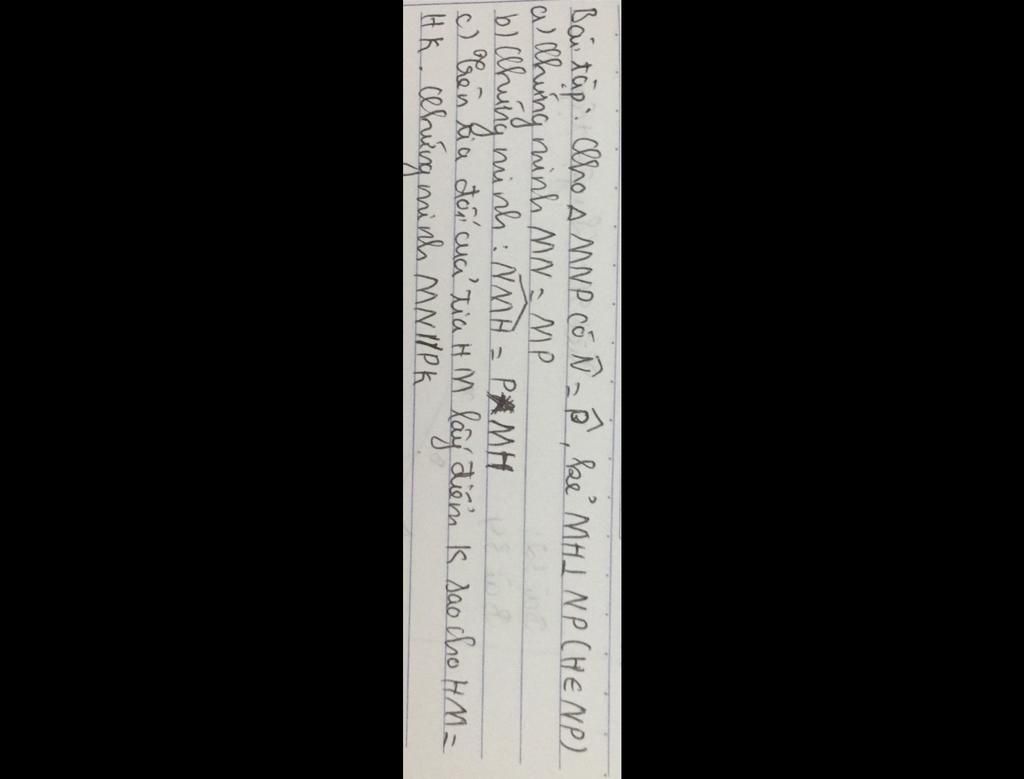 Bài tập: Cho Δ MNP có N̂ = P̂, kẻ MH ⊥ NP (H ∈ NP)
a) Chứng minh MN = MP
b) Chứng minh: NMH = PMH
c) Trên tia đối của tia HM lấy điểm K sao cho HM =
HK. Chứng minh MN // PK